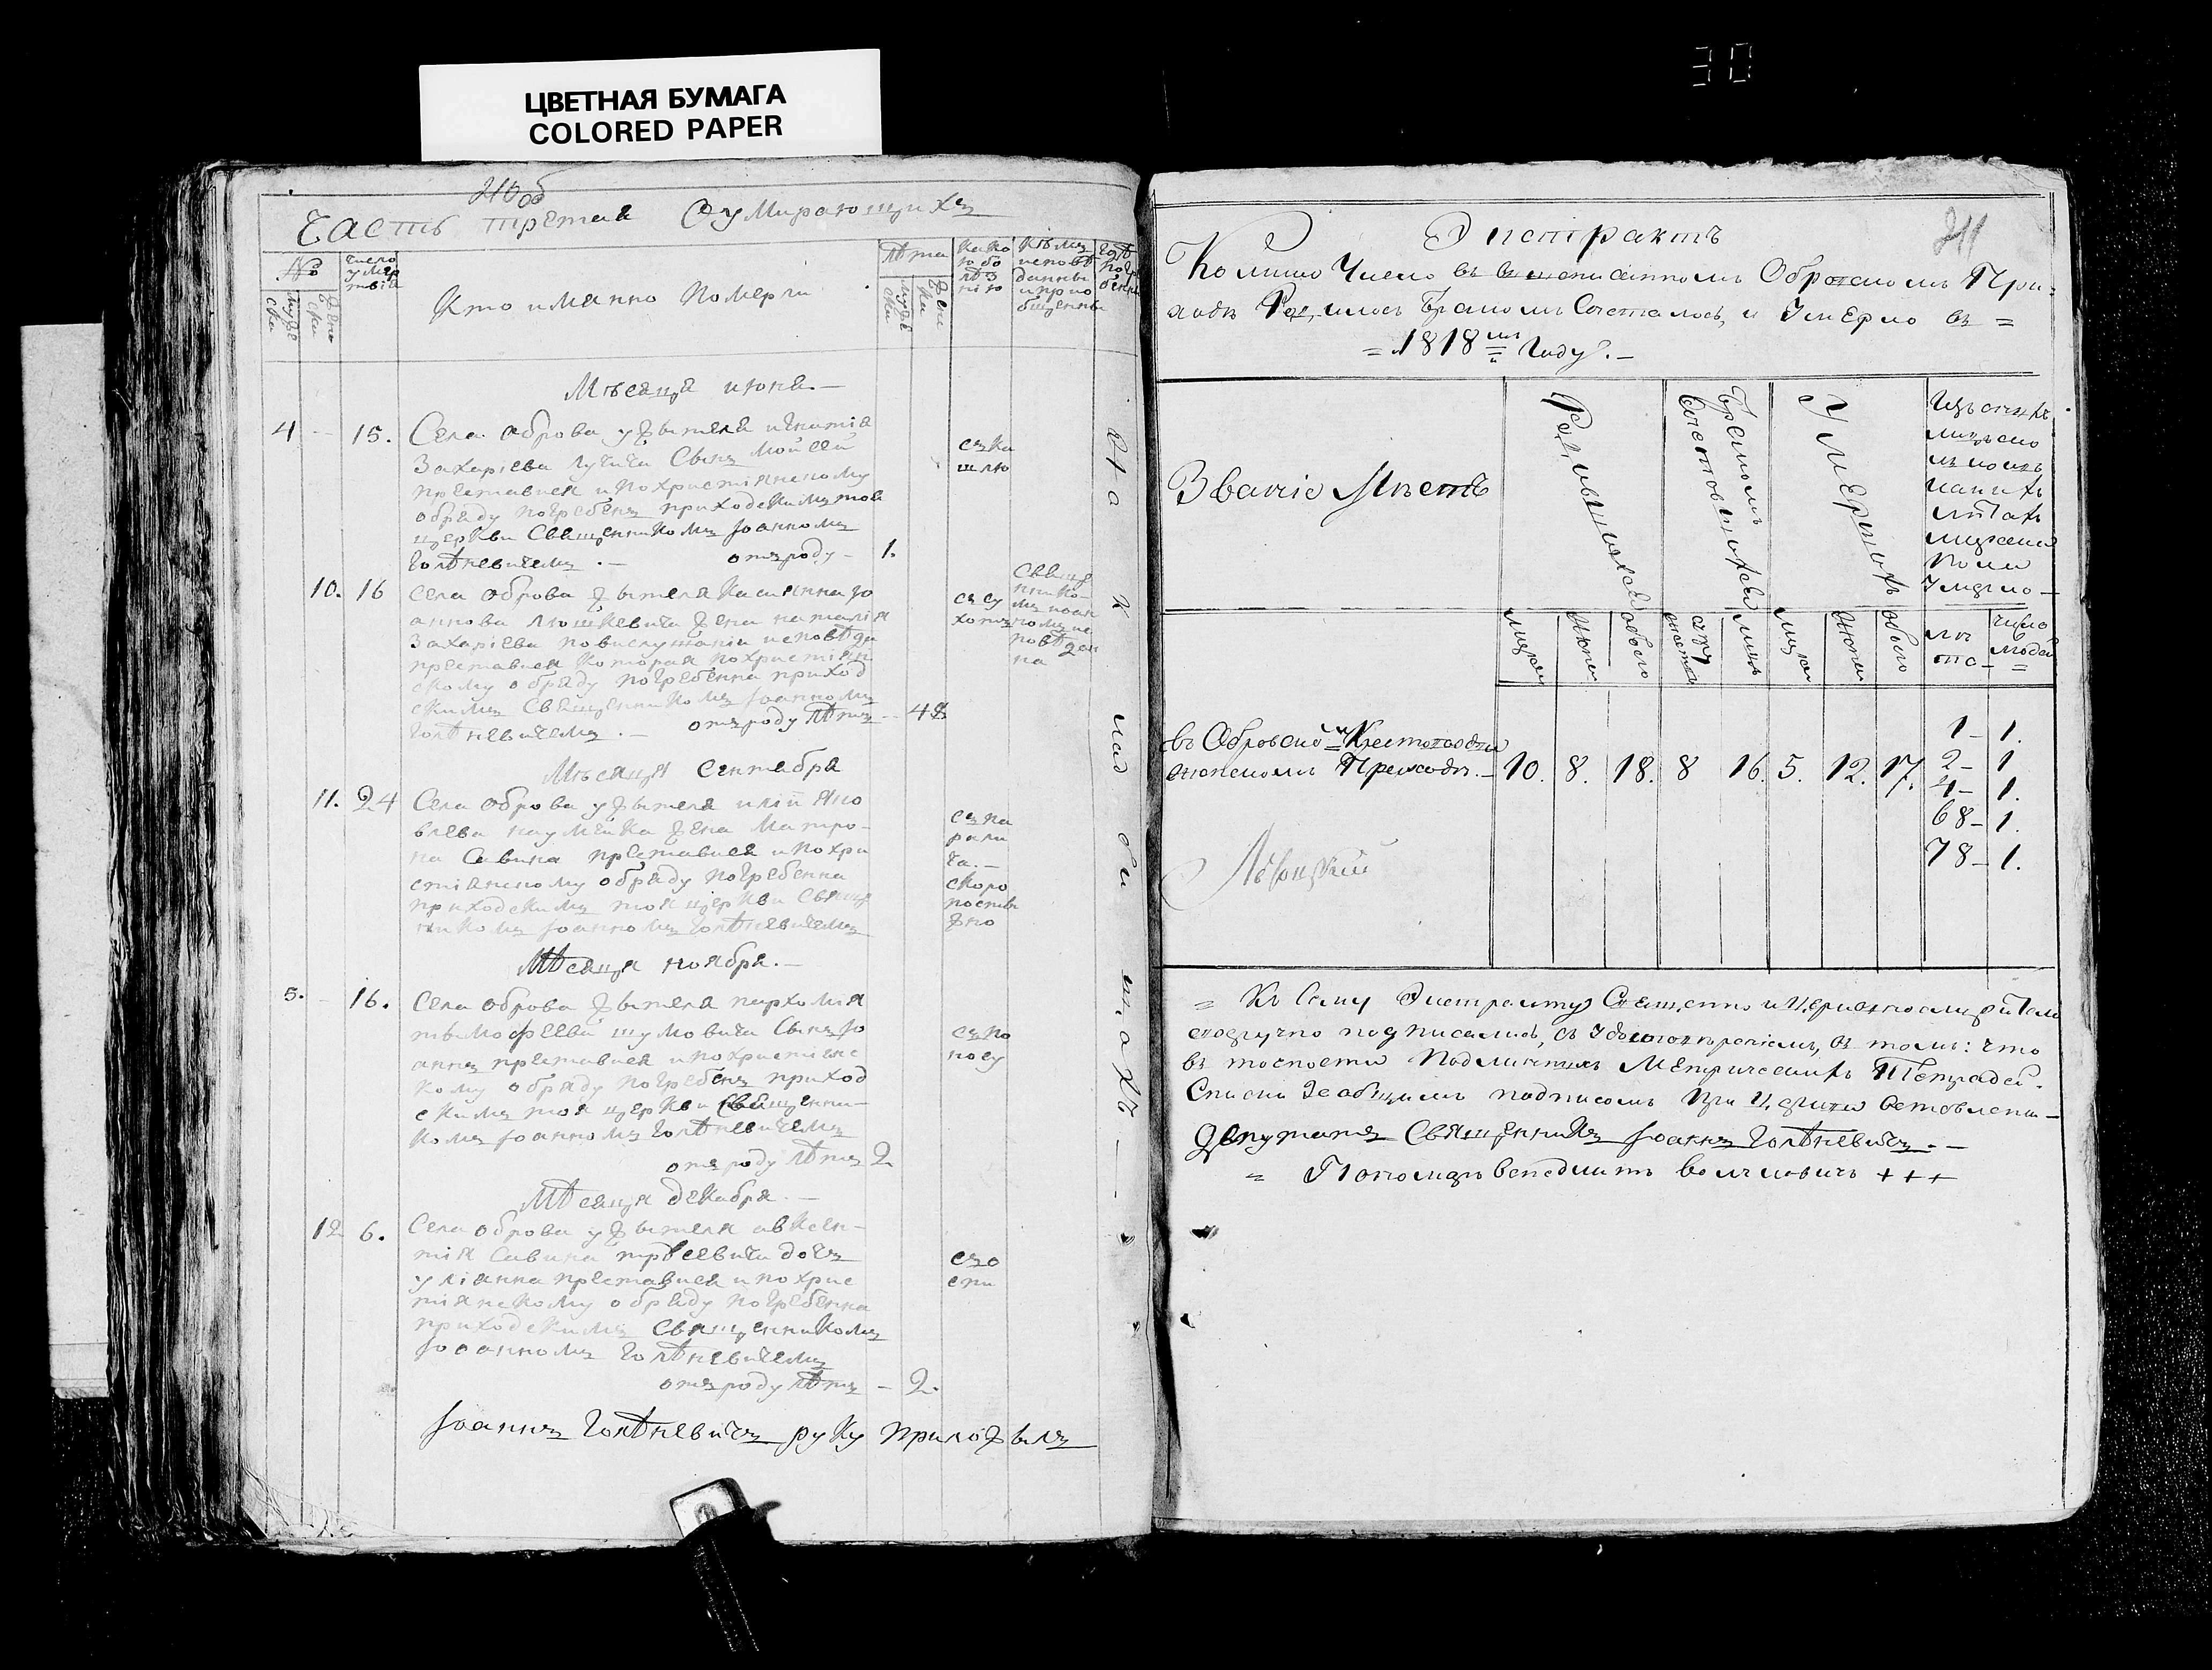 30
ЦВЕТНАЯ БУМАГА
COLORED PAPER
210 об
Часть третая О умирающихъ
№
мужеска
женска
число умертвія
Кто имянно померли
лѣта
мужеска
женска
какою болѣзнію
кѣмъ исповѣданы и пріобщенны
гдѣ погребены
Мѣсяца июня. —
4 — 15. Села оброва ужытеля игнатія
Захаріева Сынъ мойсей
преставися и похристіянскому
обряду погребенъ приходскимъ тоя
церкви Священникомъ Іоанномъ
Голѣневичемъ. — отъ роду — 1.
съ кашлю
10. 16 села оброва жытеля Касиянна Іо
аннова люшкевича жена наталія
Захаріева по выслушаніи исповѣди
преставися которая похристіян
скому обряду погребенна приход
скимъ Священникомъ Іоанномъ
Голѣневичемъ. — отъ роду лѣтъ — 48
съ сухотъ
Священникомъ иоанномъ исповѣденна
Мѣсяца Сентебра
11. 24 Села оброва ужытеля илїи Яко
влева наумчика жена Матро-
на Савина преставися и похри
стіанскому обряду погребенна
приходскимъ тоя церкви Священ
никомъ Іоанномъ Голѣневичемъ
съ паралича. — скоропостыжно
Мѣсяца ноября. —
5. — 16. Села оброва жытеля пархомія
тымофеева шумовича Сынъ Іо
аннъ преставися и похристіянс
кому обряду погребенъ приход
скимъ тоя церкви Священни-
комъ Іоанномъ Голѣневичемъ
отъ роду лѣтъ 2
съ поносу
Мѣсяца декабра. —
12 6. Села оброва ужытеля авксен-
тія Савина дочъ
уліанна преставися и похрис
тіянскому обряду погребенна
приходскимъ Священникомъ
Іоанномъ Голѣневичемъ
отъ роду лѣтъ — 2.
съ оспи
на кладбищахъ
Іоаннъ Голѣневичъ руку приложылъ
211
Экстрактъ
Колико Число въ вышеписанномъ Обровскомъ При-
ходѣ Родилось Бракомъ Сочеталось, и Умерло въ =
= 1818мъ Году. —
Званіе Мѣстъ
Родившихся
Бракомъ Сочетовшихся
Умершихъ
Изъ онихъ мужеско женска въ какихъ лѣтахъ мужеска пола Умерло —
мужеска
женска
обоего
супружества
лицъ
мужеска
женска
обоего
лѣта
число людей =
въ Обровскo Крестовоздви
женскомъ Приходѣ. — 10. 8. 18. 8 16. 5. 12. 17.
1 — 1.
2 — 1
4 — 1.
68 — 1.
78 — 1.
= Къ Сему Экстракту Священно и Церковнослужители
своеручно подписались, съ Удостовѣреніемъ, въ томъ: что
въ точности Подлинныхъ Метрическихъ Тетрадей.
Списки За общимъ подписомъ При Церкви Оставлени —
Депутатъ Священникъ Іоаннъ Голѣневичъ. —
= Пономаръ Венедиктъ +++